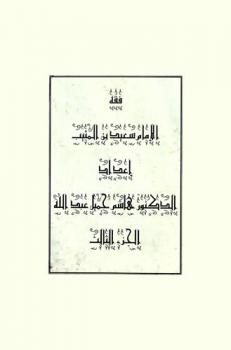 فقه
الإمام سعيد بن المسيب
إعداد
الدكتور هاشم جميل عبد الله
الجزء الثالث